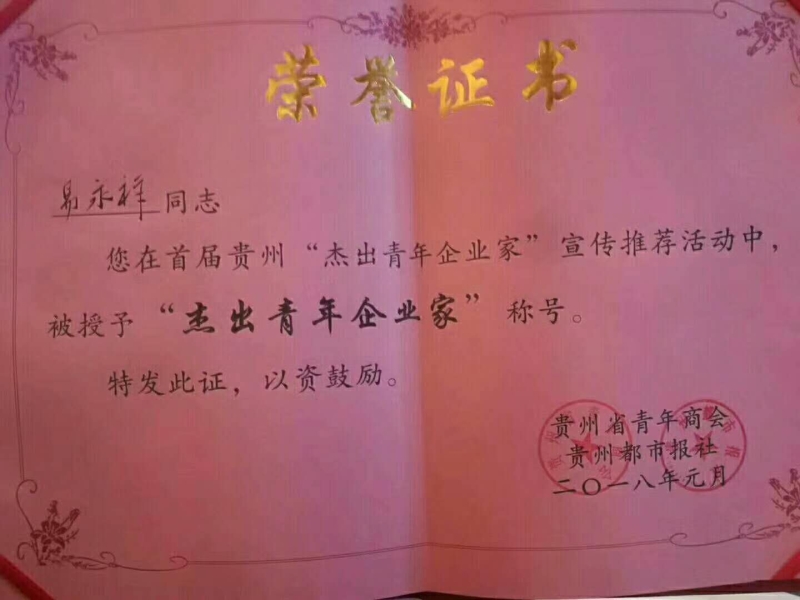 荣誉证书
易永祥同志
您在首届贵州“杰出青年企业家”宣传推荐活动中，
被授予“杰出青年企业家”称号。
特发此证，以资鼓励。
贵州省青年商会
贵州都市报社
二〇一八年元月